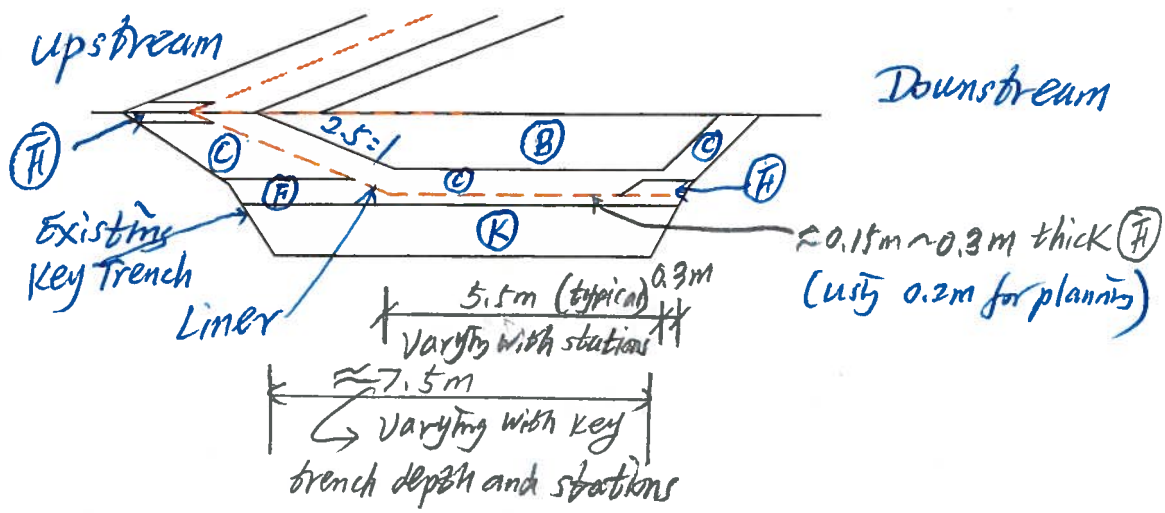 Upstream
Downstream
2.5:1
B
C
C
C
F
F
F
K
Existing
Key Trench
Liner
≈0.15m~0.3m thick F
(using 0.2m for planning)
5.5m (typical)
0.3m
Varying with stations
≈7.5m
Varying with key
trench depth and stations